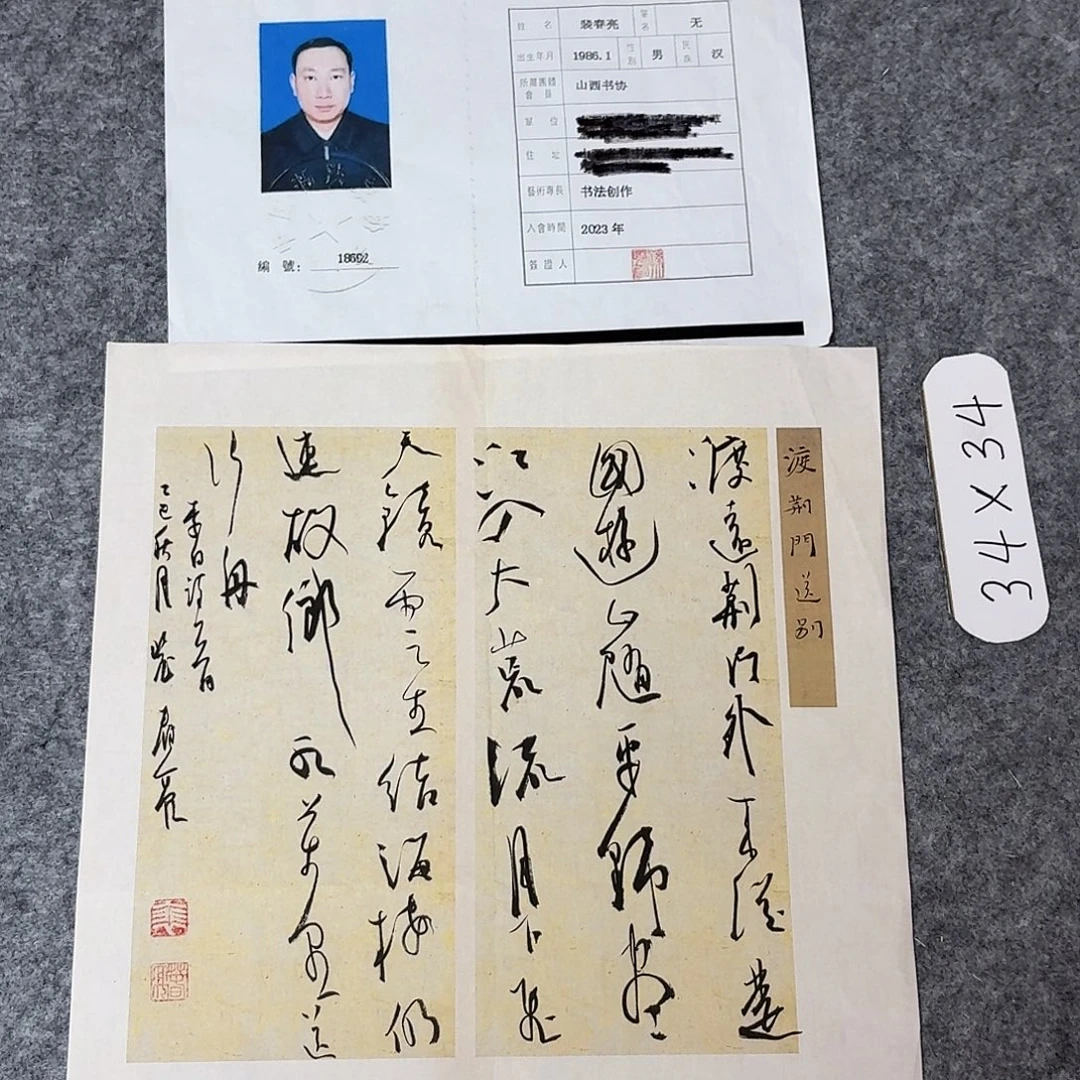 姓名 裴春亮 筆名 无
出生年月 1986.1 性别 男 民族 汉
所屬團體會員 山西书协
單位
住址
藝術專長 书法创作
入會時間 2023年
簽證人
編號: 18692
34×34
渡荆門送别
渡遠荆门外来從楚
國遊山随平野盡
江入大荒流月下飛
天鏡雲生结海楼仍
連故鄉水萬里送
行舟
李白诗一首
乙巳秋月裴春亮